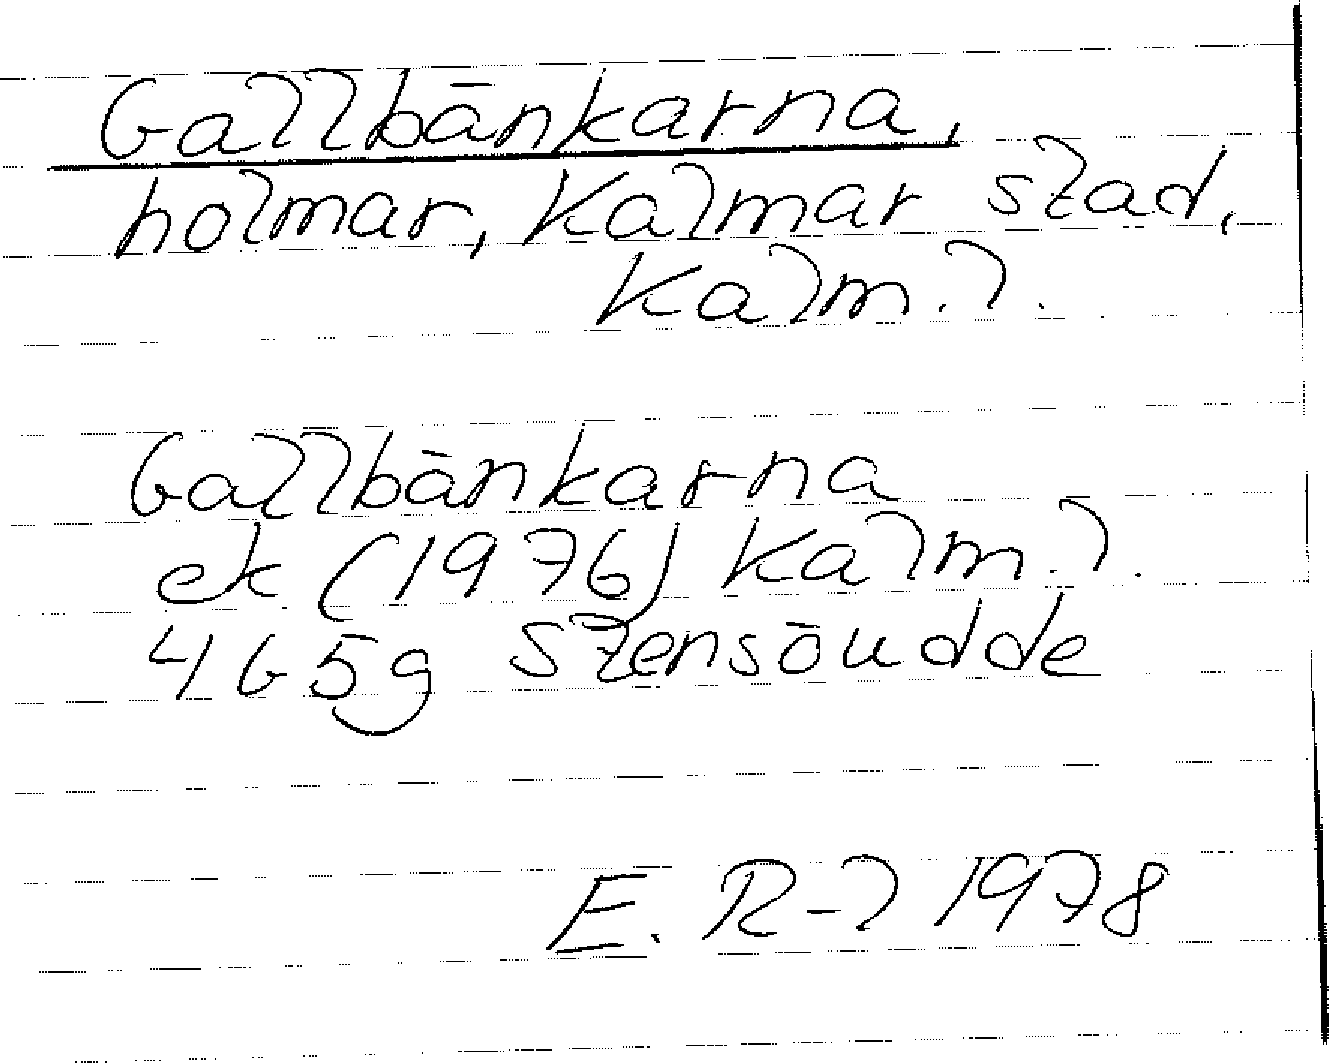 Gallbänkarna,
holmar, Kalmar stad,
Kalm. l.
Gallbänkarna
ek (1976) Kalm. l.
4G5g Stensöudde
E. R-l 1978